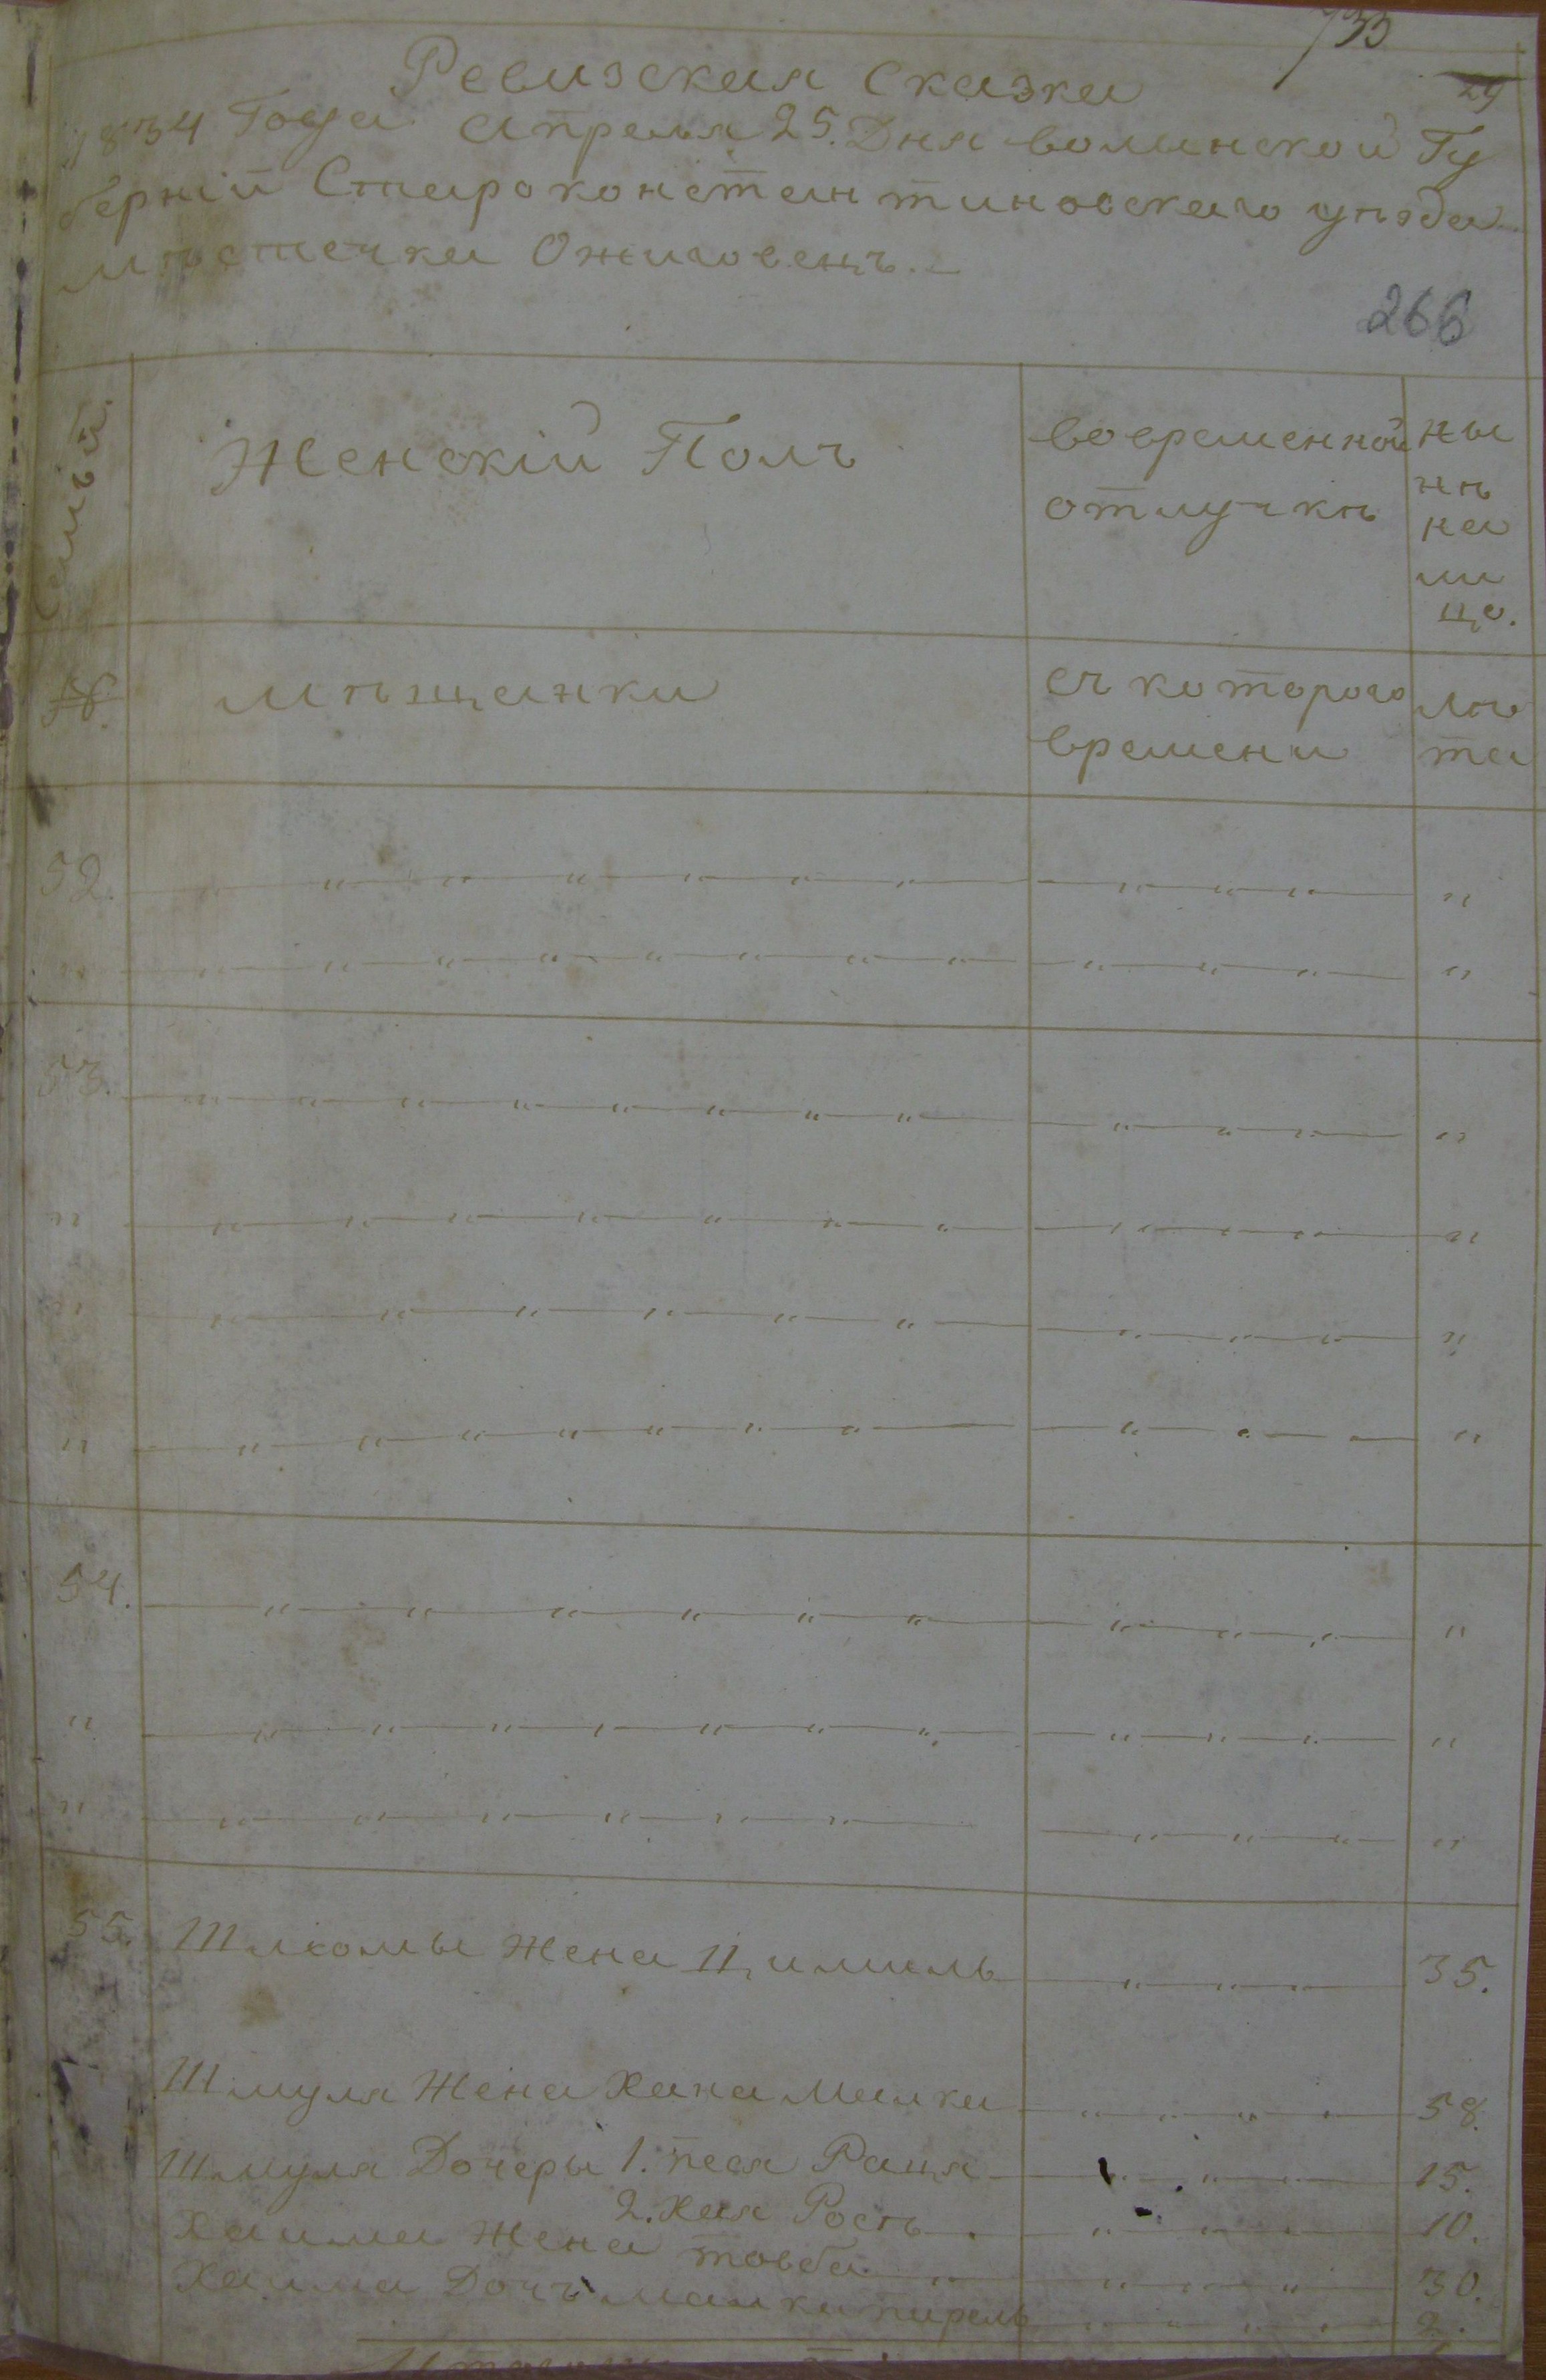 733
29
Ревизская Сказка
1834 Года Апреля 25. Дня волынской Гу
берніи Староконстантиновскаго уѣзда
мѣстечка Ожиговецъ.
266
Семьи. Женскій Полъ вовременной отлучкѣ ны нѣ на ли цо.
№. мѣщанки съ котораго времени лѣ та
52. " " " " " " " " " " "
" " " " " " " " " " " " "
53. " " " " " " " " " " " "
" " " " " " " " " " " "
" " " " " " " " " " "
" " " " " " " " " " " "
54. " " " " " " " " " "
" " " " " " " " " " " "
" " " " " " " " " " "
55. Шліомы Жена Цимиль " " " 35.
Шмуля Жена Хана Малка " " " " 58.
Шмуля Дочеры 1. песя Раця " " " 15.
2. Хая Рость " " " 10.
Хаима Жена товба " " " " 30.
Хаима Дочъ Малка пирель " " " " 2.